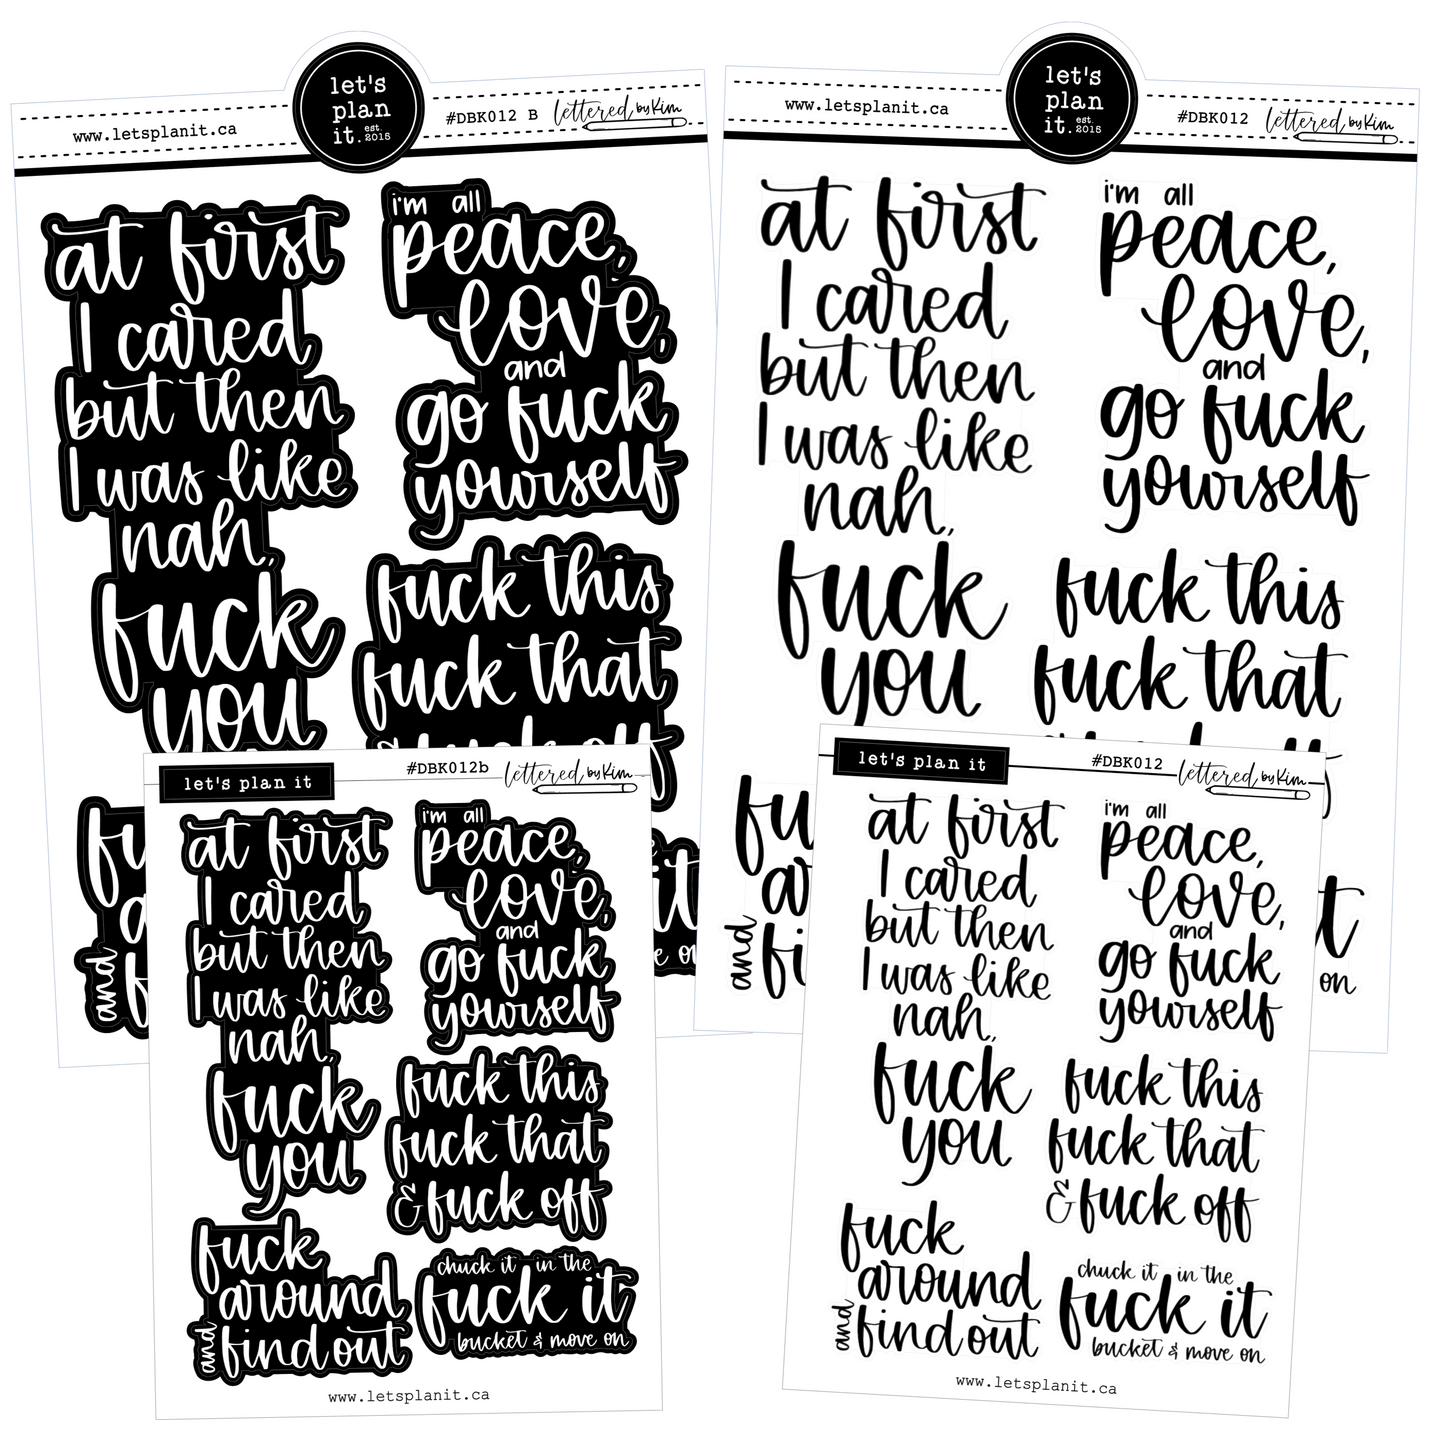 let's
plan
it. est. 2015
www.letsplanit.ca
#DBK012 B
lettered by Kim
at first
I cared
but then
I was like
nah,
fuck
you
i'm all
peace,
love,
and
go fuck
yourself
fuck this
fuck that
& fuck off
let's
plan
it. est. 2015
www.letsplanit.ca
#DBK012
lettered by Kim
at first
I cared
but then
I was like
nah,
fuck
you
i'm all
peace,
love,
and
go fuck
yourself
fuck this
fuck that
and
on
let's plan it
#DBK012b
lettered by Kim
at first
I cared
but then
I was like
nah,
fuck
you
i'm all
peace,
love,
and
go fuck
yourself
fuck this
fuck that
& fuck off
fuck
around
and find out
chuck it in the
fuck it
bucket & move on
www.letsplanit.ca
let's plan it
#DBK012
lettered by Kim
at first
I cared
but then
I was like
nah,
fuck
you
i'm all
peace,
love,
and
go fuck
yourself
fuck this
fuck that
& fuck off
fuck
around
and find out
chuck it in the
fuck it
bucket & move on
www.letsplanit.ca